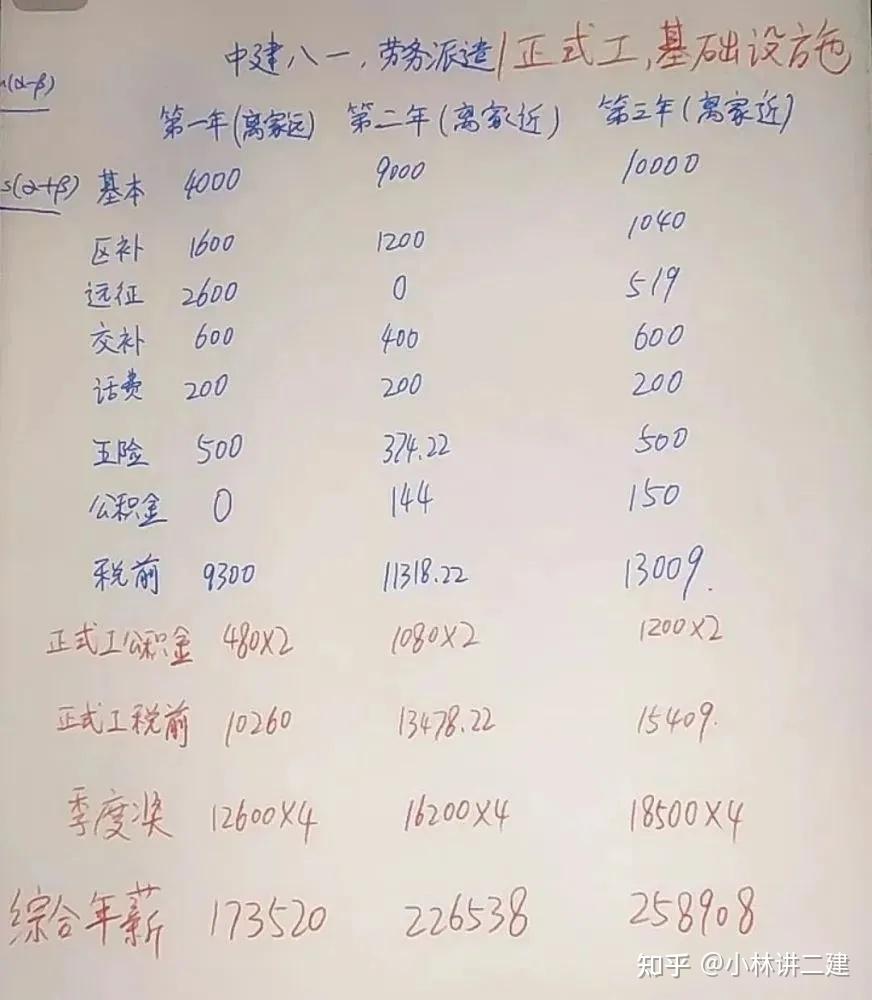 中建八一，劳务派遣/正式工，基础设施
n(α-β)
第一年(离家远) 第二年(离家近) 第三年(离家近)
s(α+β)
基本 4000 9000 10000
区补 1600 1200 1040
远征 2600 0 519
交补 600 400 600
话费 200 200 200
五险 500 374.22 500
公积金 0 144 150
税前 9300 11318.22 13009.
正式工公积金 480×2 1080×2 1200×2
正式工税前 10260 13478.22 15409.
季度奖 12600×4 16200×4 18500×4
综合年薪 173520 226538 258908
知乎 @小林讲二建